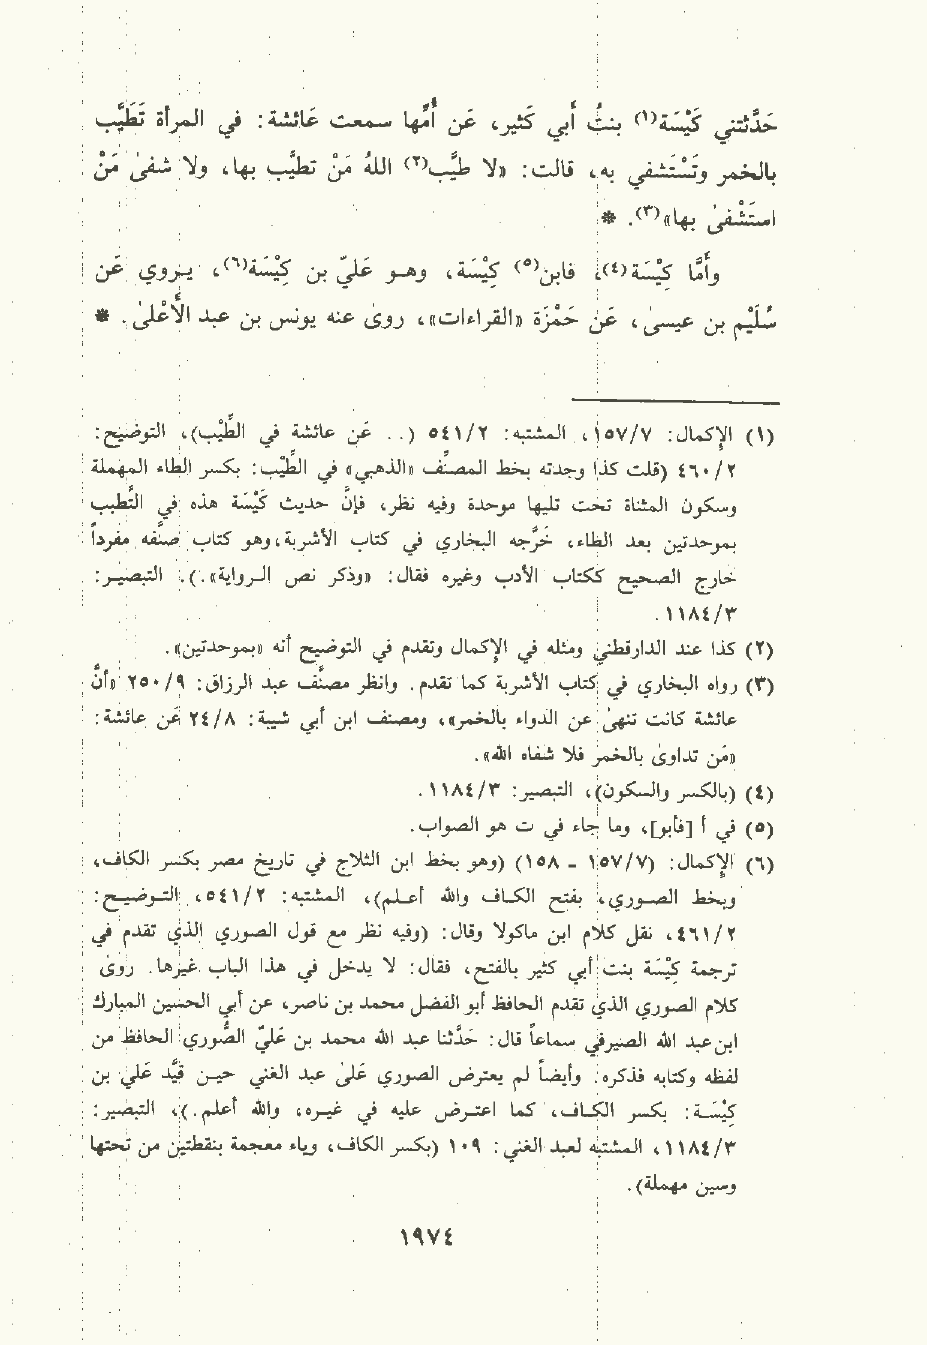 حَدَّثتني كَيْسَة(١) بنتُ أبي كثير، عَن أُمِّها سمعت عَائشة: في المرأة تَطَيَّب
بالخمر وتَسْتَشفي به، قالت: «لا طيَّب(٢) اللهُ مَنْ تطيَّب بها، ولا شفىٰ مَنْ
استَشْفىٰ بها»(٣). *
وأَمَّا كِيْسَة(٤)، فابن(٥) كِيْسَة، وهو عَليّ بن كِيْسَة(٦)، يروي عَن
سُلَيْم بن عيسىٰ، عَن حَمْزَة «القراءات»، روىٰ عنه يونس بن عبد الأَعْلىٰ. *
(١) الإكمال: ١٥٧/٧، المشتبه: ٥٤١/٢ (.. عَن عائشة في الطِّيْب)، التوضيح:
٤٦٠/٢ (قلت كذا وجدته بخط المصنِّف «الذهبي» في الطِّيْب: بكسر الطاء المهملة
وسكون المثناة تحت تليها موحدة وفيه نظر، فإنَّ حديث كَيْسَة هذه في التَّطبب
بموحدتين بعد الطاء، خَرَّجه البخاري في كتاب الأشربة،وهو كتاب صنَّفه مفرداً
خارج الصحيح ككتاب الأدب وغيره فقال: «وذكر نص الرواية».)، التبصير:
١١٨٤/٣.
(٢) كذا عند الدارقطني ومثله في الإكمال وتقدم في التوضيح أنه «بموحدتين».
(٣) رواه البخاري في كتاب الأشربة كما تقدم. وانظر مصنَّف عبد الرزاق: ٢٥٠/٩ «أنَّ
عائشة كانت تنهىٰ عن الدواء بالخمر»، ومصنف ابن أبي شيبة: ٢٤/٨ عَن عائشة:
«مَن تداوىٰ بالخمر فلا شفاه الله».
(٤) (بالكسر والسكون)، التبصير: ١١٨٤/٣.
(٥) في أ [فأبو]، وما جاء في ت هو الصواب.
(٦) الإكمال: (١٥٧/٧ - ١٥٨) (وهو بخط ابن الثلاج في تاريخ مصر بكسر الكاف،
وبخط الصوري، بفتح الكاف والله أعلم)، المشتبه: ٥٤١/٢، التوضيح:
٤٦١/٢، نقل كلام ابن ماكولا وقال: (وفيه نظر مع قول الصوري الذي تقدم في
ترجمة كَيْسَة بنت أبي كثير بالفتح، فقال: لا يدخل في هذا الباب غيرها. روىٰ
كلام الصوري الذي تقدم الحافظ أبو الفضل محمد بن ناصر، عن أبي الحسين المبارك
ابن عبد الله الصيرفي سماعاً قال: حَدَّثنا عبد الله محمد بن عَليّ الصُّوري الحافظ من
لفظه وكتابه فذكره. وأيضاً لم يعترض الصوري عَلىٰ عبد الغني حين قَيَّد عَلي بن
كِيْسَة: بكسر الكاف، كما اعترض عليه في غيره، والله أعلم.)، التبصير:
١١٨٤/٣، المشتبه لعبد الغني: ١٠٩ (بكسر الكاف، وياء معجمة بنقطتين من تحتها
وسين مهملة).
١٩٧٤